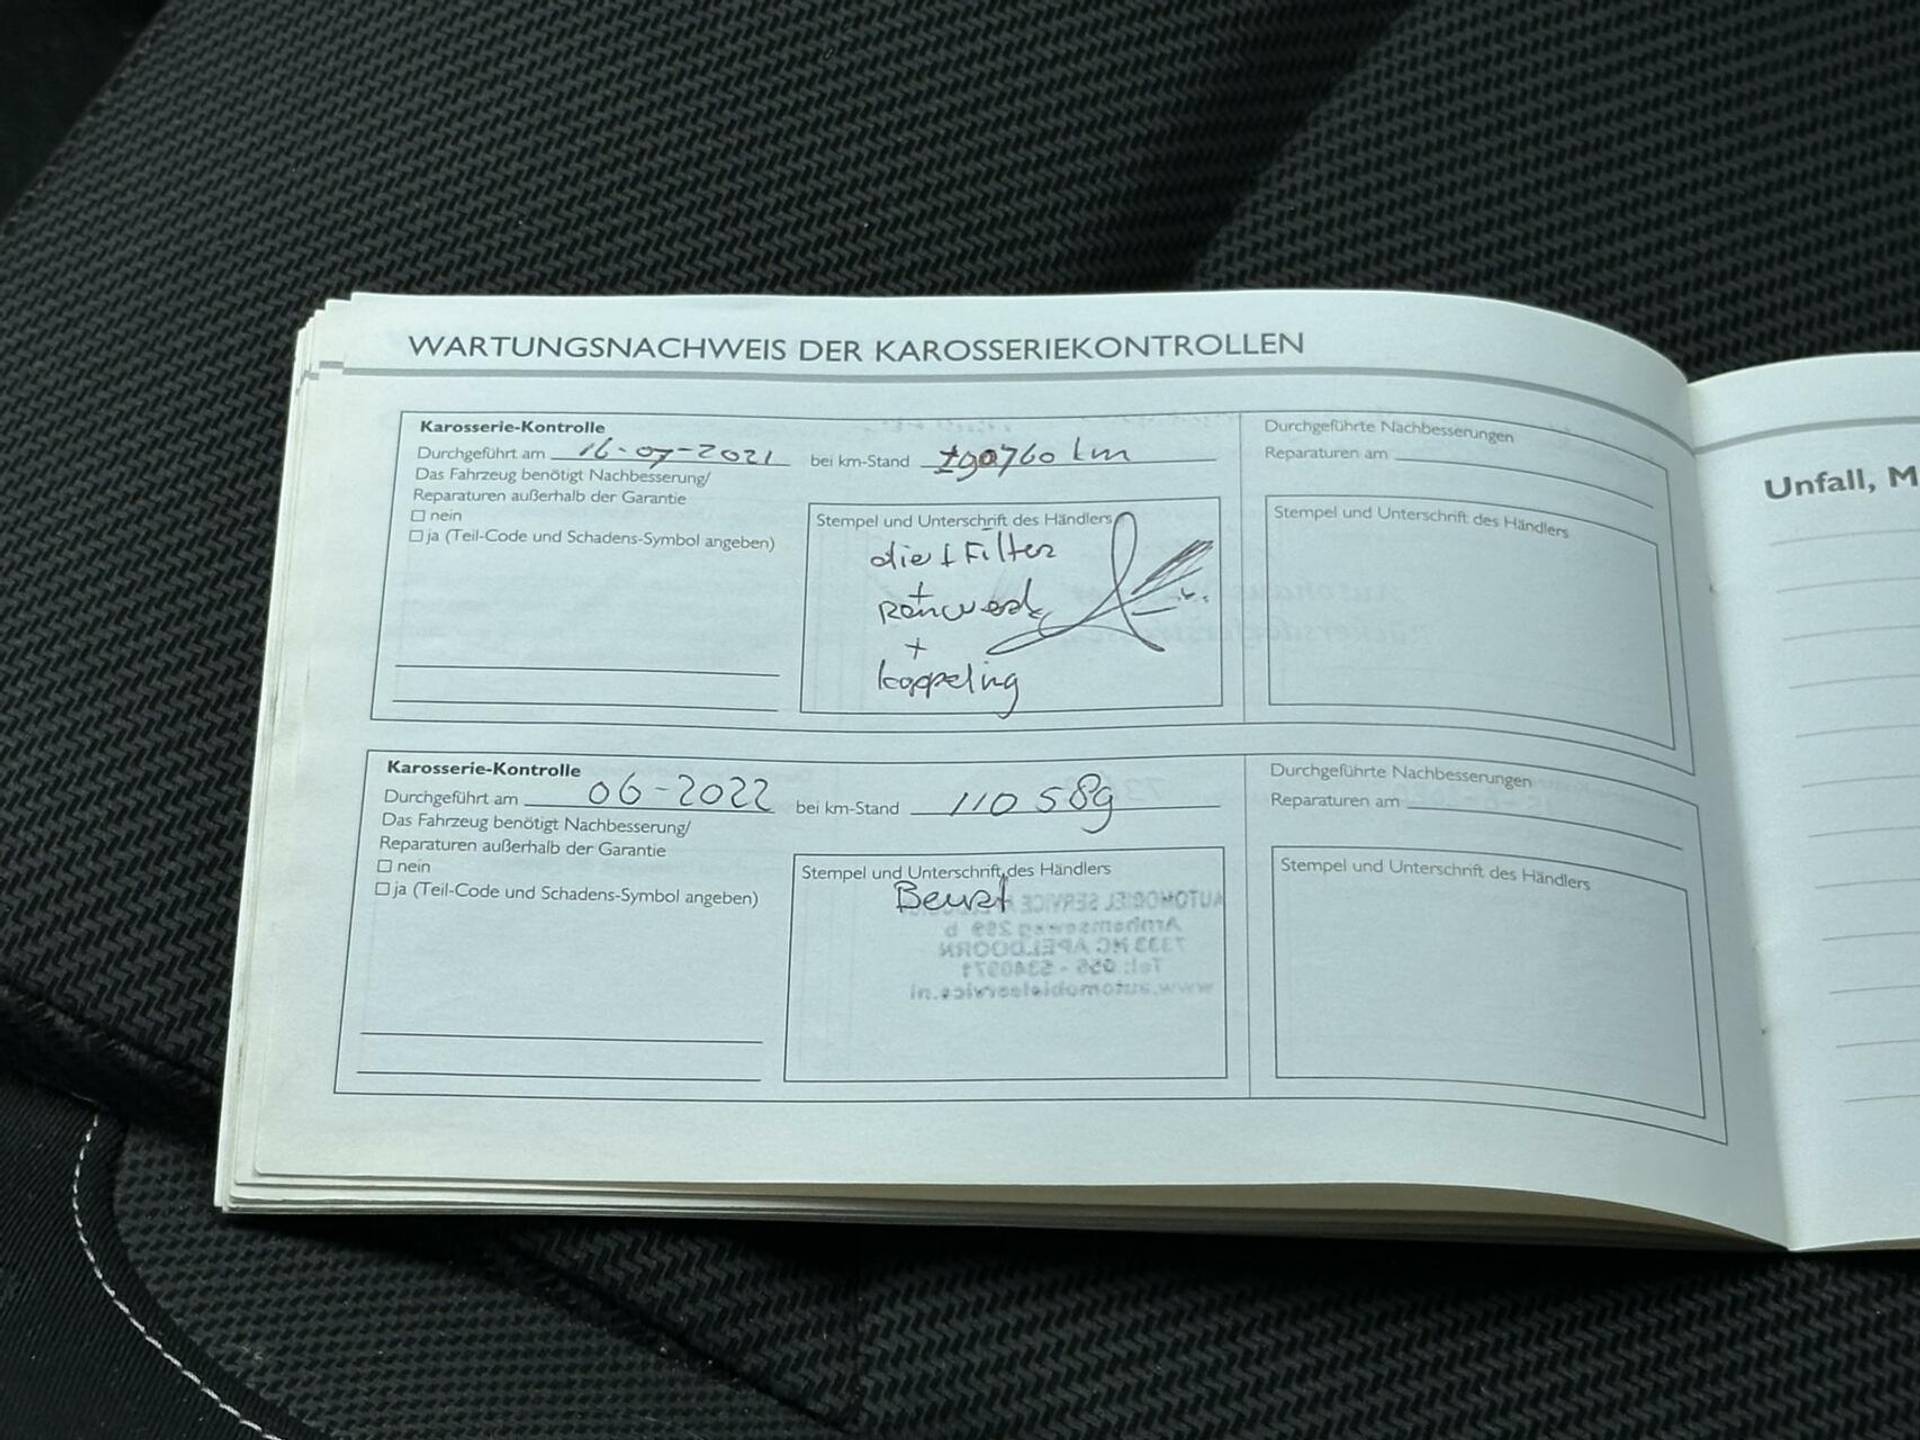 WARTUNGSNACHWEIS DER KAROSSERIEKONTROLLEN
Karosserie-Kontrolle
Durchgeführt am 16-07-2021 bei km-Stand ±90760 km
Das Fahrzeug benötigt Nachbesserung/
Reparaturen außerhalb der Garantie
nein
ja (Teil-Code und Schadens-Symbol angeben)
Stempel und Unterschrift des Händlers
Filter
+
+
koppeling
Durchgeführte Nachbesserungen
Reparaturen am
Stempel und Unterschrift des Händlers
Karosserie-Kontrolle
Durchgeführt am 06-2022 bei km-Stand 110 589
Das Fahrzeug benötigt Nachbesserung/
Reparaturen außerhalb der Garantie
nein
ja (Teil-Code und Schadens-Symbol angeben)
Stempel und Unterschrift des Händlers
Beurt
Durchgeführte Nachbesserungen
Reparaturen am
Stempel und Unterschrift des Händlers
Unfall, M